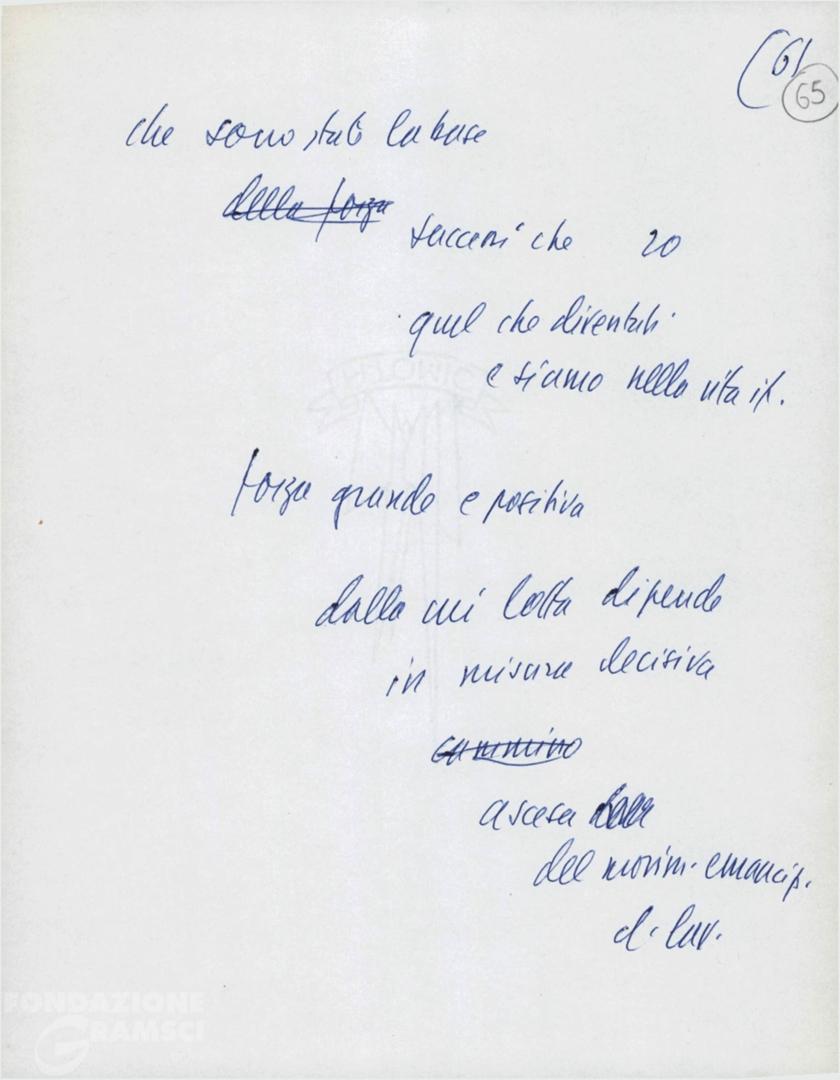 (61
65
che sono stati la base
della forza
successi che 20
quel che diventati
e siamo nella vita it.
forza grande e positiva
dalla cui lotta dipende
in misura decisiva
cammino
ascesa
del movim. emancip.
d. lav.
FONDAZIONE
GRAMSCI